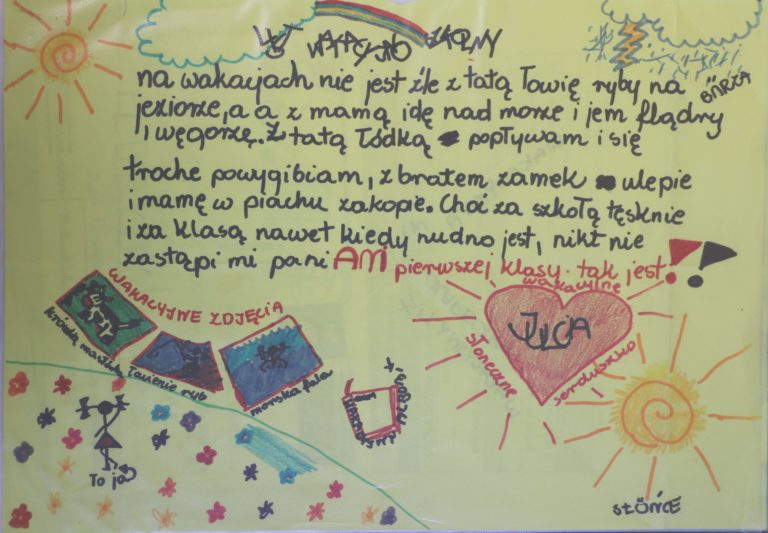 na wakacjach nie jest źle z tatą łowię ryby na
jeziorze, a a z mamą idę nad morze i jem flądry
i węgorzę. Z tatą łódką popływam i się
troche powygibiam, z bratem zamek ulepie
i mamę w piachu zakopie. Choi za szkołą tęsknie
i za klasą nawet kiedy nudno jest, nikt nie
zastąpi mi pani AMI pierwszej klasy. tak jest!!
BÓRZA
WAKACYJWE ZDJĘCIA
Łowienie ryb
morska fala
wakacyjne
słoneczne
serduszko
JULCIA
To ja
SŁOŃCE